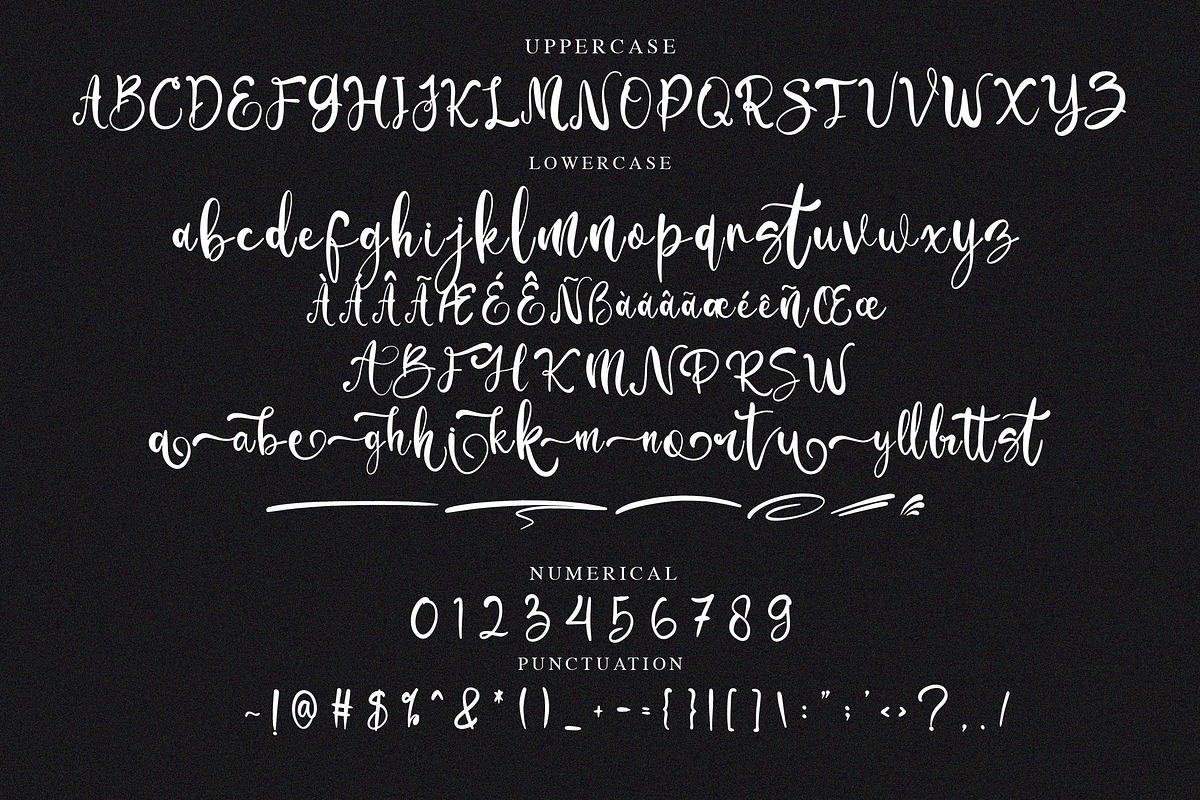 UPPERCASE
ABCDEFGHIJKLMNOPQRSTUVWXYZ
LOWERCASE
abcdefghijklmnopqrstuvwxyz
ÀÁÂÃÆÉÊÑßàáâãæéêñŒœ
ABFHKMNPRSW
a~abe~ghhikk~m~noortu~yllbrttst
NUMERICAL
0123456789
PUNCTUATION
~!@#$%^&*()_+-={}|[]\:";'<>?,./